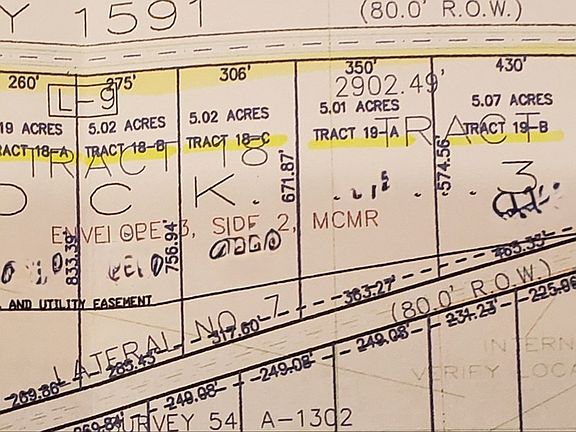 Y 1591 (80.0' R.O.W.)
260' 275' 306' 350' 430'
L-9 2902.49'
19 ACRES 5.02 ACRES 5.02 ACRES 5.01 ACRES 5.07 ACRES
TRACT 18-A TRACT 18-B TRACT 18-C TRACT 19-A TRACT 19-B
TRACT 18 TRACT
671.87' 574.56'
O C K . 3
ENVELOPE 3, SIDE 2, MCMR
833.39' 756.94'
485.35'
AND UTILITY EASEMENT
363.27' (80.0' R.O.W.) 225.96
LATERAL NO. 7 317.60' 231.23'
269.86' 285.43' 249.08'
249.08' INTERN
249.08' VERIFY LOCA
269.84' SURVEY 54 A-1302